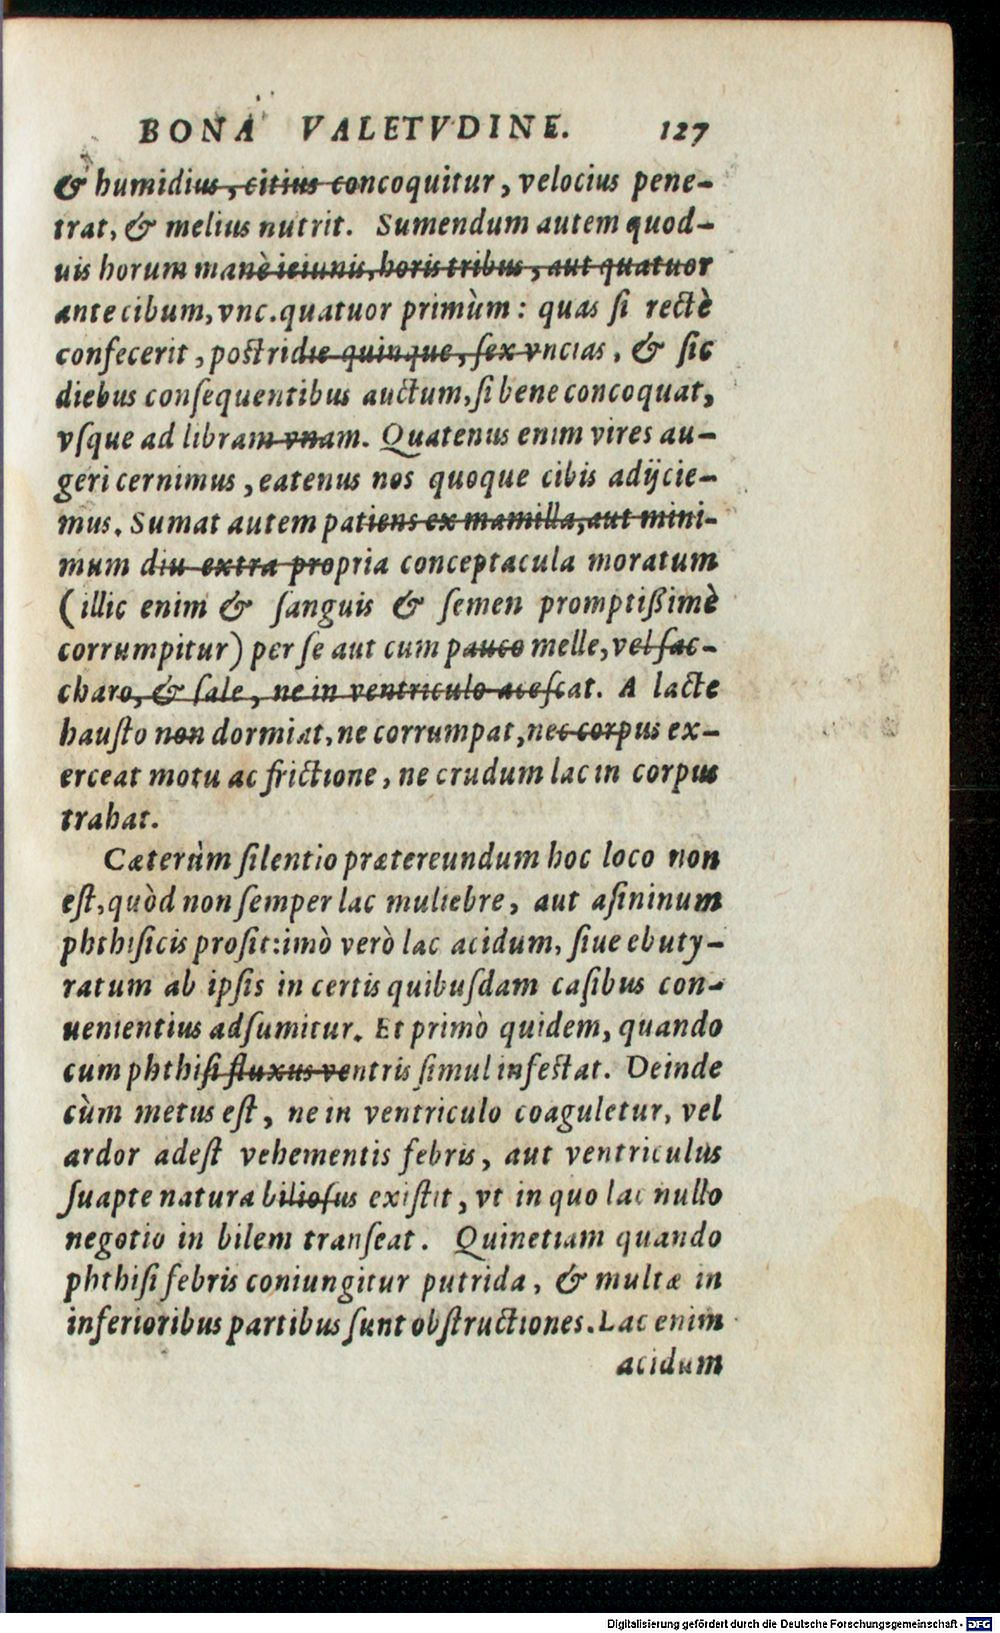 BONA VALETVDINE. 127
& humidius, citius concoquitur, velocius pene-
trat, & melius nutrit. Sumendum autem quod-
uis horum manè ieiunis, horis tribus, aut quatuor
ante cibum, vnc. quatuor primùm: quas si rectè
confecerit, postridie quinque, sex vncias, & sic
diebus consequentibus auctum, si bene concoquat,
vsque ad libram vnam. Quatenus enim vires au-
geri cernimus, eatenus nos quoque cibis adijcie-
mus. Sumat autem patiens ex mamilla, aut mini-
mum diu extra propria conceptacula moratum
(illic enim & sanguis & semen promptißimè
corrumpitur) per se aut cum pauco melle, vel sac-
charo, & sale, ne in ventriculo acescat. A lacte
hausto non dormiat, ne corrumpat, nec corpus ex-
erceat motu ac frictione, ne crudum lac in corpus
trahat.
Cæterùm silentio prætereundum hoc loco non
est, quòd non semper lac muliebre, aut asininum
phthisicis prosit: imò verò lac acidum, siue ebuty-
ratum ab ipsis in certis quibusdam casibus con-
uenientius adsumitur. Et primò quidem, quando
cum phthisi fluxus ventris simul infestat. Deinde
cùm metus est, ne in ventriculo coaguletur, vel
ardor adest vehementis febris, aut ventriculus
suapte natura biliosus existit, vt in quo lac nullo
negotio in bilem transeat. Quinetiam quando
phthisi febris coniungitur putrida, & multæ in
inferioribus partibus sunt obstructiones. Lac enim
acidum
Digitalisierung gefördert durch die Deutsche Forschungsgemeinschaft - DFG